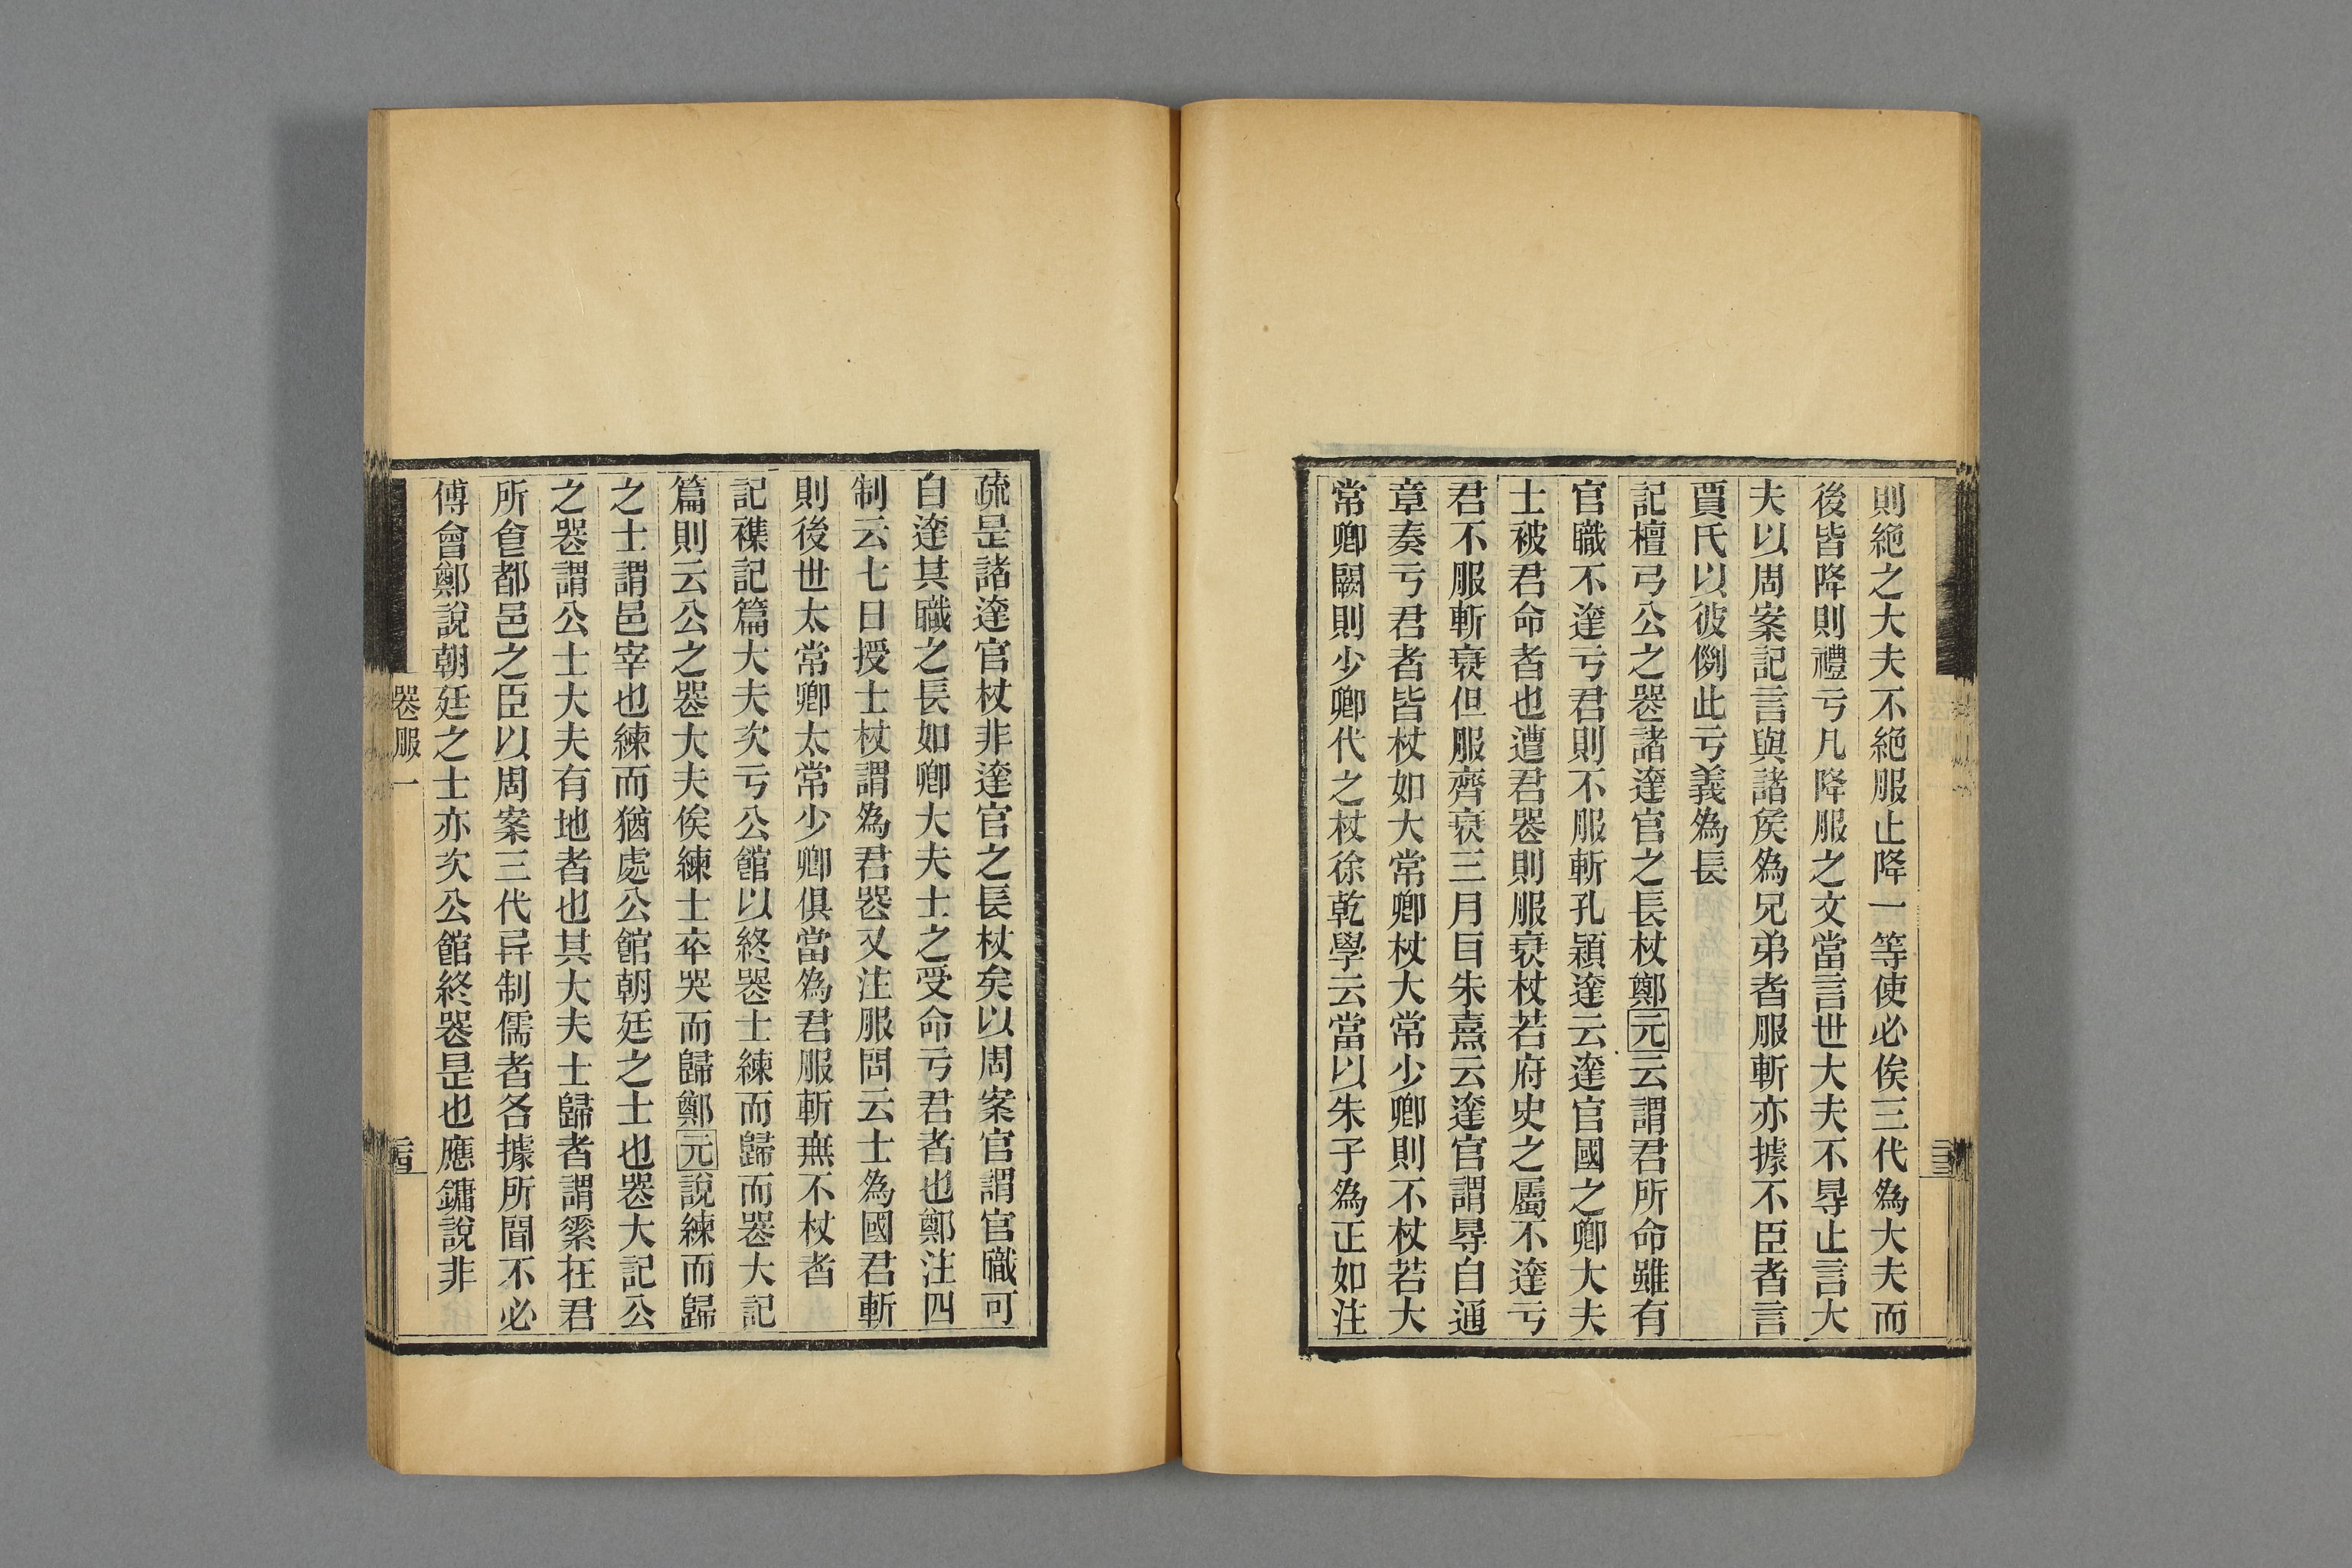 則絶之大夫不絶服止降一等使必俟三代爲大夫而
後皆降則禮亏凡降服之文當言世大夫不㝵止言大
夫以周案記言與諸矦爲兄弟者服斬亦據不臣者言
賈氏以彼例此亏義爲長
記檀弓公之喪諸達官之長杖鄭元云謂君所命雖有
官職不達亏君則不服斬孔穎達云達官國之卿大夫
士被君命者也遭君喪則服衰杖若府史之屬不達亏
君不服斬衰但服齊衰三月㠯朱熹云達官謂㝵自通
章奏亏君者皆杖如大常卿杖大常少卿則不杖若大
常卿闕則少卿代之杖徐乾學云當以朱子爲正如注
疏是諸達官杖非達官之長杖矣以周案官謂官職可
自達其職之長如卿大夫士之受命亏君者也鄭注四
制云七日授士杖謂爲君喪又注服問云士爲國君斬
則後世太常卿太常少卿俱當爲君服斬無不杖者
記襍記篇大夫次亏公館以終喪士練而歸而喪大記
篇則云公之喪大夫俟練士卒哭而歸鄭元說練而歸
之士謂邑宰也練而猶處公館朝廷之士也喪大記公
之喪謂公士大夫有地者也其大夫士歸者謂素在君
所食都邑之臣以周案三代異制儒者各據所聞不必
傅會鄭說朝廷之士亦次公館終喪是也應鏞說非
喪服一